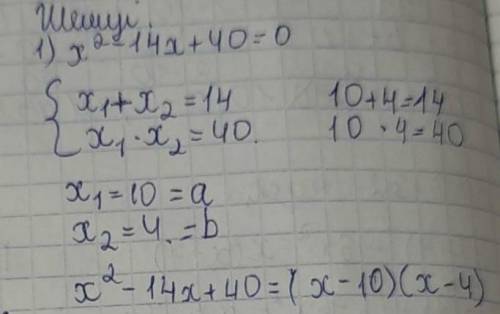 Шешуі.
1) x² - 14x + 40 = 0
{ x₁ + x₂ = 14 10 + 4 = 14
x₁ · x₂ = 40. 10 · 4 = 40
x₁ = 10 = a
x₂ = 4. = b
x² - 14x + 40 = (x - 10)(x - 4)